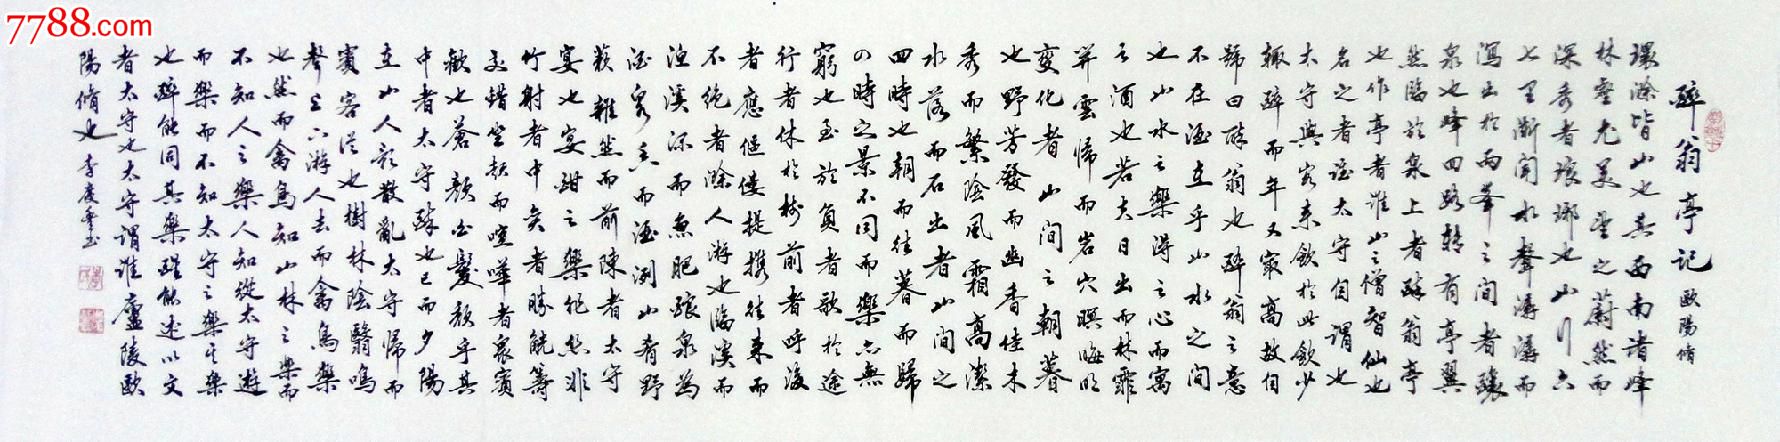 7788.com
醉翁亭记 歐陽脩
環滁皆山也其西南诸峰
林壑尤美望之蔚然而
深秀者琅琊也山行六
七里漸聞水聲潺潺而
瀉出於两峯之间者釀
泉也峰回路转有亭翼
然臨於泉上者醉翁亭
也作亭者誰山之僧智仙也
名之者誰太守自謂也
太守與客来飲於此飲少
輒醉而年又最高故自
號曰醉翁也醉翁之意
不在酒在乎山水之间
也山水之樂得之心而寓
之酒也若夫日出而林霏
开雲歸而岩穴暝晦明
變化者山间之朝暮
也野芳發而幽香佳木
秀而繁陰風霜高潔
水落而石出者山间之
四時也朝而往暮而歸
四時之景不同而樂亦無
窮也至於負者歌於途
行者休於樹前者呼後
者應伛偻提携往来而
不绝者滁人游也臨溪而
漁溪深而魚肥釀泉為
酒泉香而酒洌山肴野
蔌雜然而前陳者太守
宴也宴酣之樂非絲非
竹射者中奕者勝觥筹
交错坐起而喧嘩者衆賓
歡也蒼颜白髪颓乎其
中者太守醉也已而夕陽
在山人影散亂太守歸而
賓客從也樹林陰翳鳴
聲上下游人去而禽鳥樂
也然而禽鳥知山林之樂而
不知人之樂人知從太守遊
而樂而不知太守之樂其樂
也醉能同其樂醒能述以文
者太守也太守謂誰廬陵歐
陽脩也